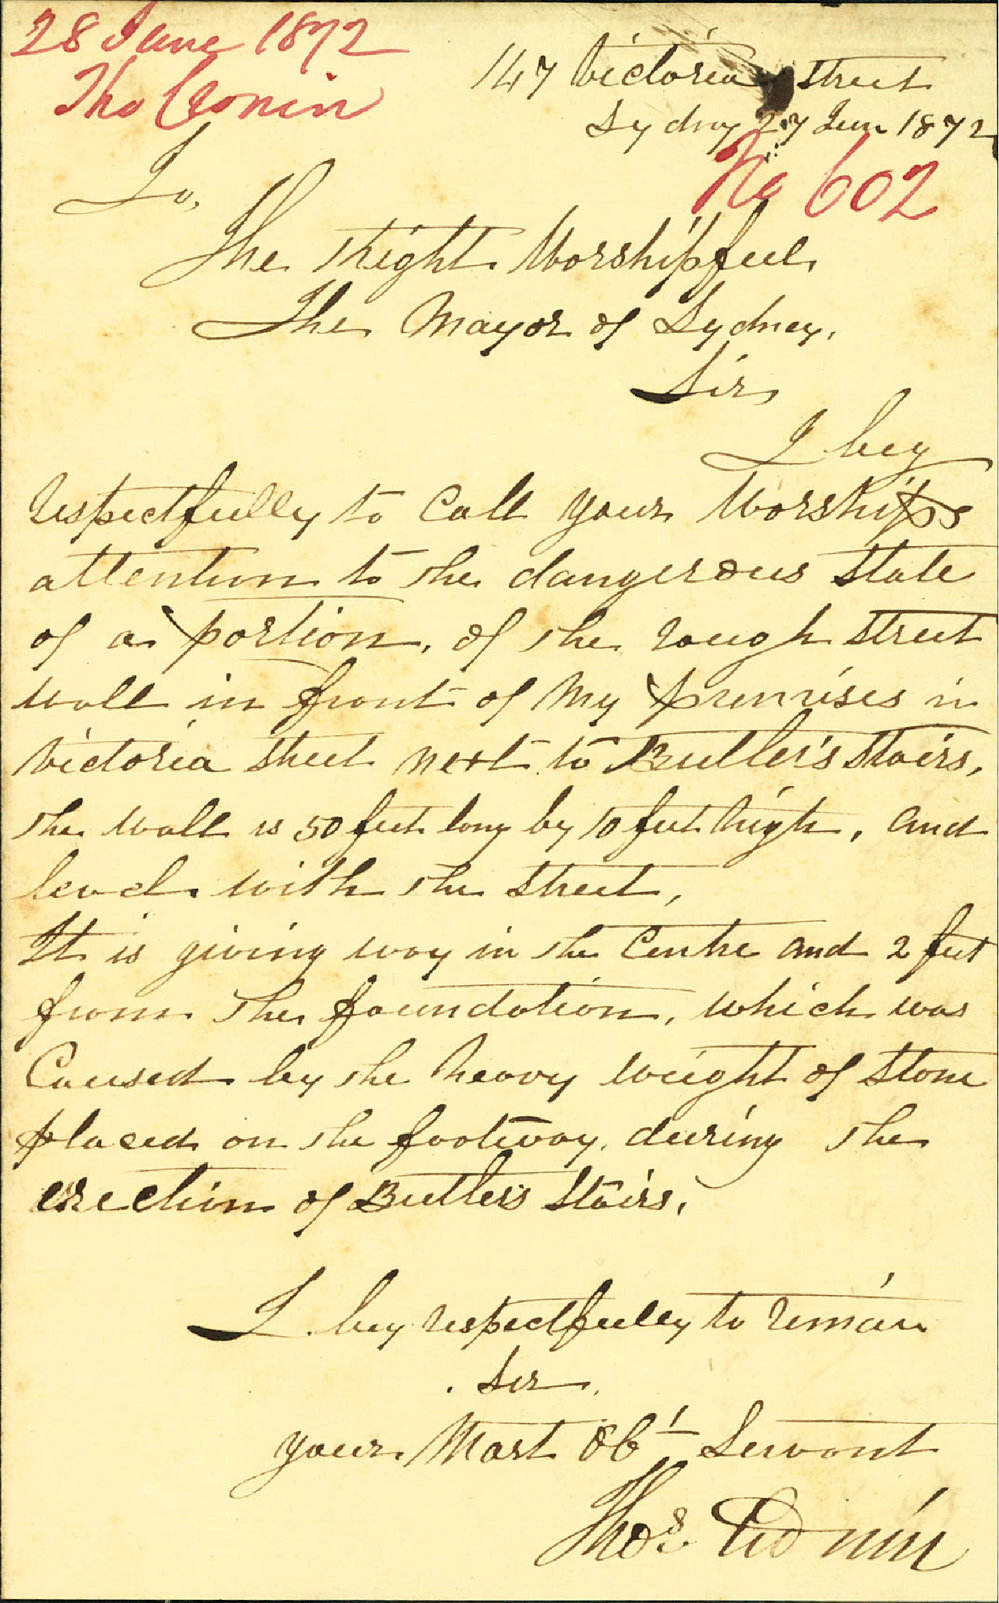 28 June 1872
Tho Cronin
147 Victoria street
Sydney 27 June 1872
No 602
To,
The Right Worshipful
The Mayor of Sydney.
Sir
I beg
respectfully to Call your Worships
attention to the dangerous state
of a portion, of the rough street
wall in front of my premises in
Victoria street next to Butler's stairs,
the wall is 50 feet long by 10 feet high, and
level with the street,
It is giving way in the Centre and 2 feet
from the foundation, which was
Caused by the heavy weight of stone
placed on the footway, during the
erection of Butler's Stairs.
I beg respectfully to remain
Sir
your Most Obt Servant
Thos. Cronin